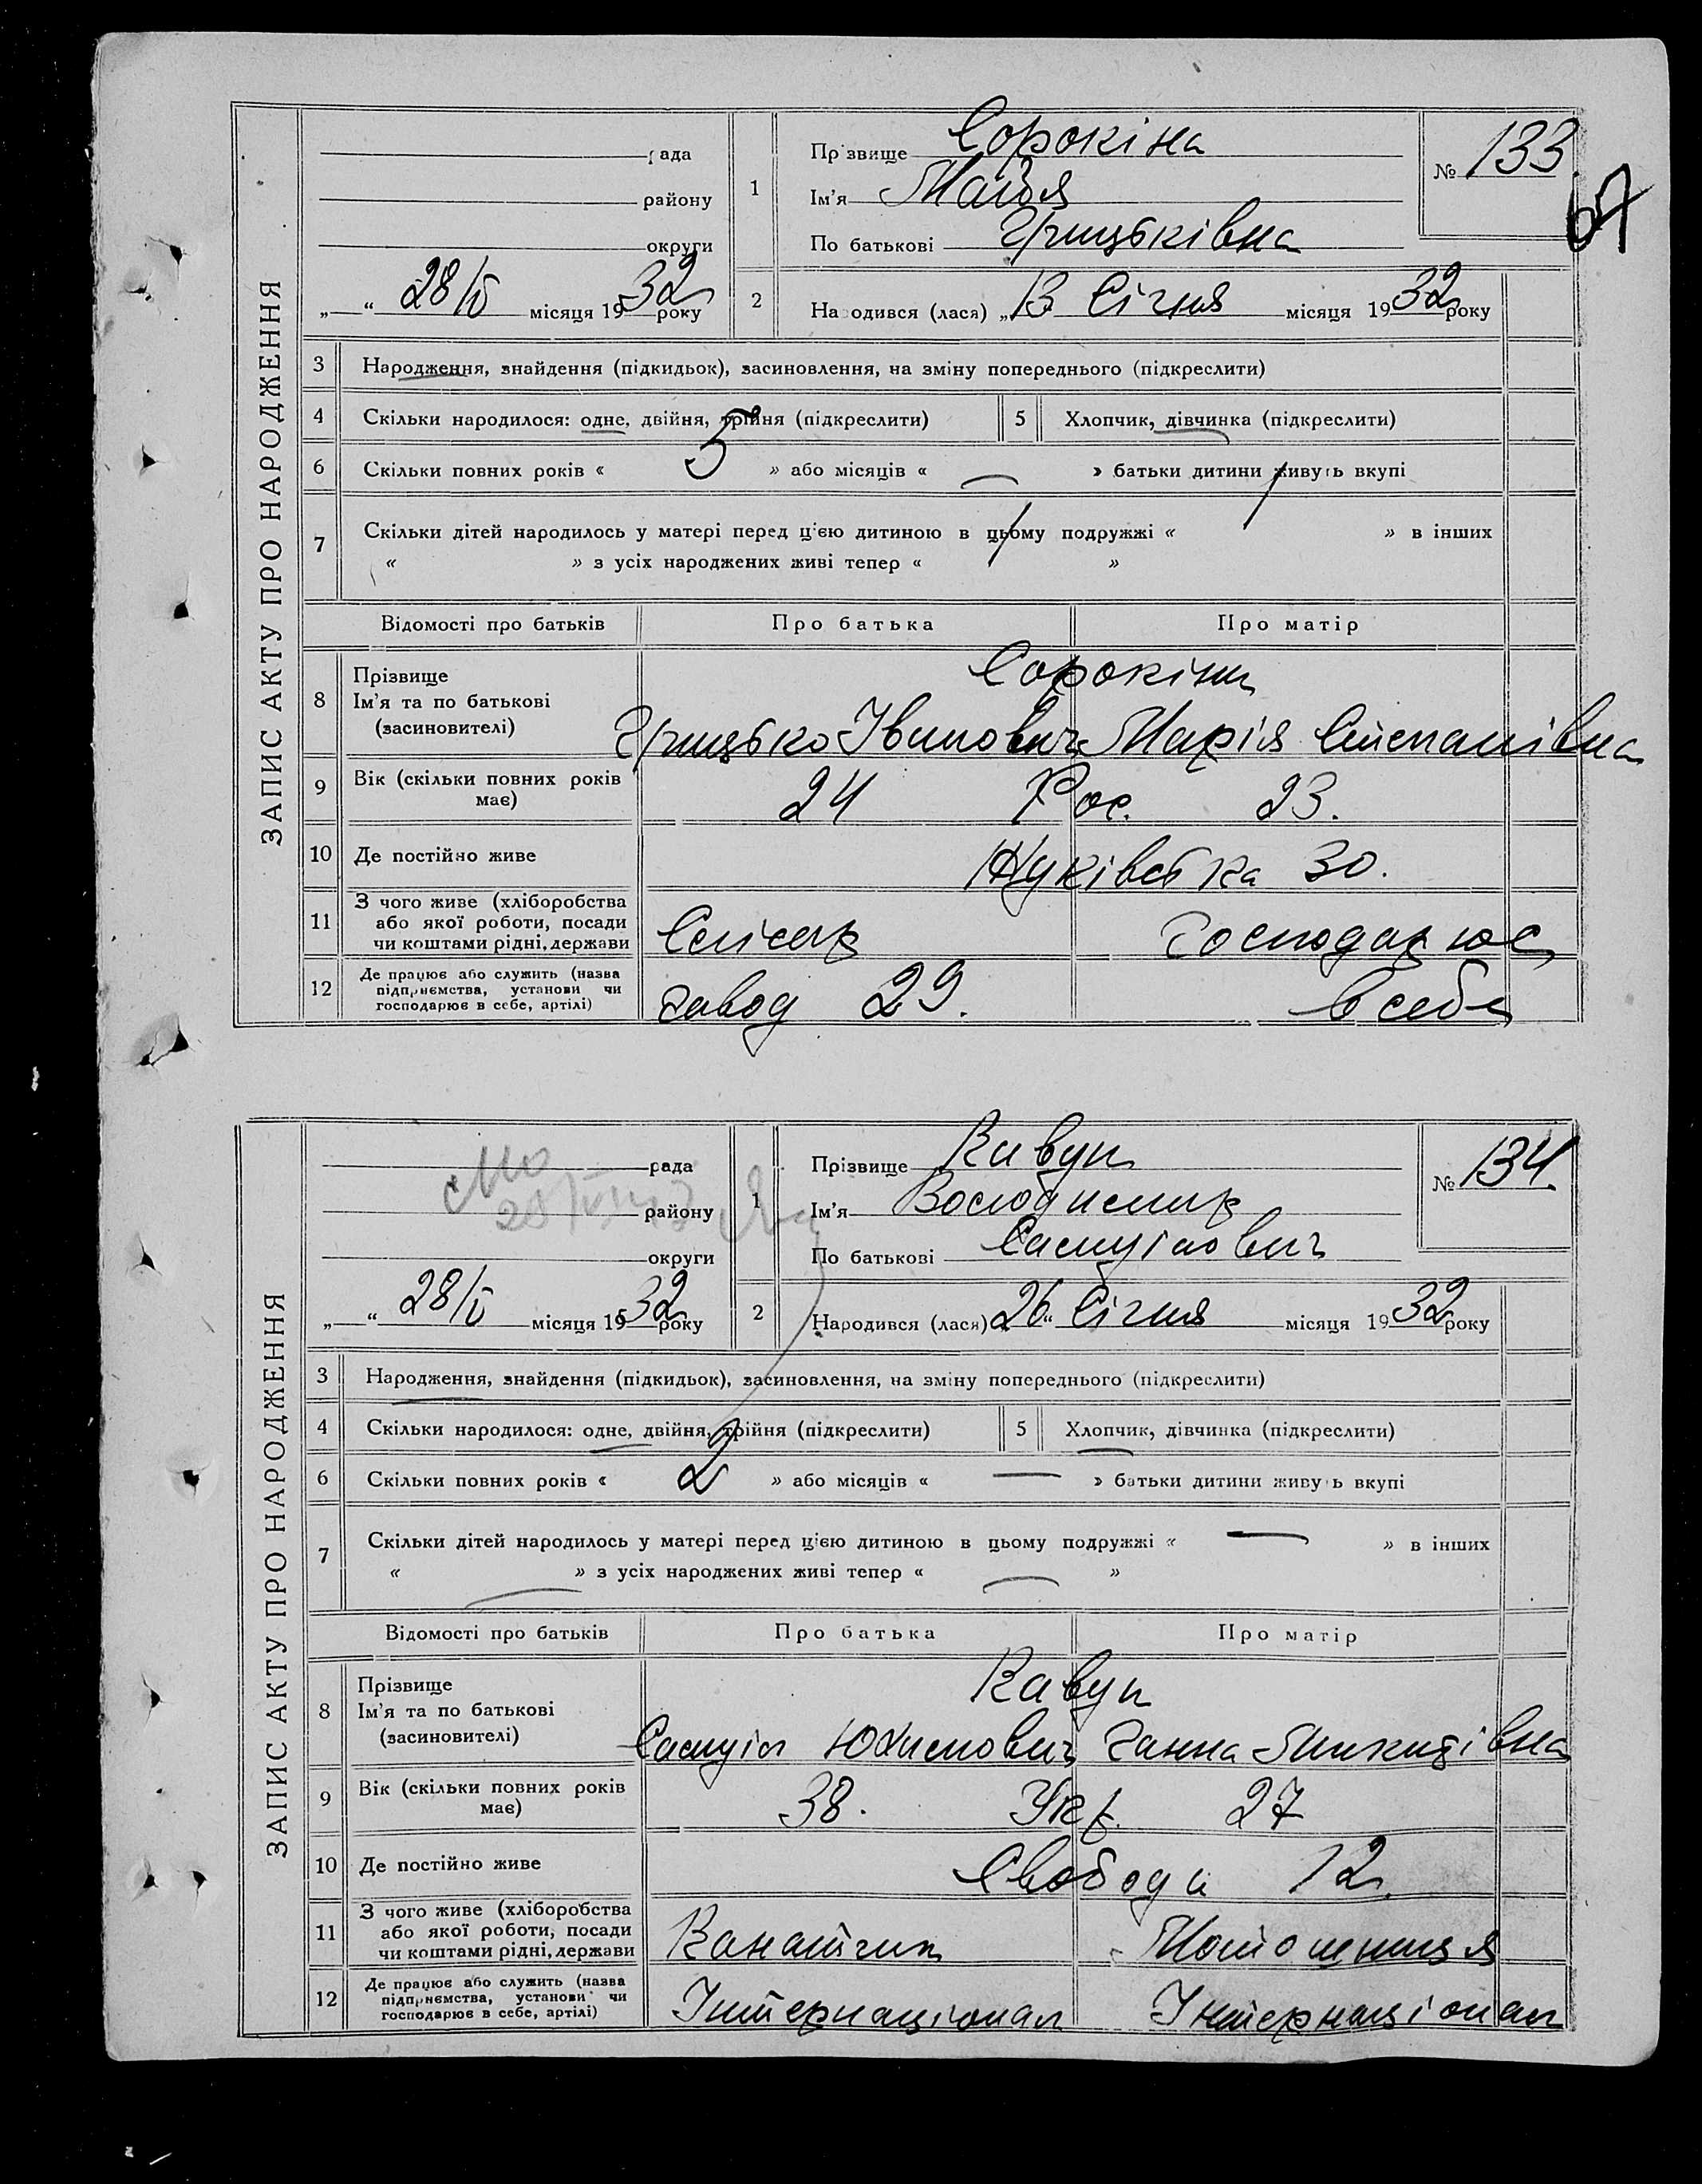 ЗАПИС АКТУ ПРО НАРОДЖЕННЯ
рада
району
округи
„ “ 28/I місяця 1932 року
1
Прізвище Сорокіна
Ім'я Майя
По батькові Грицьківна
№ 133.
67
2 Народився (лася) „13 Січня місяця 1932 року
3 Народження, знайдення (підкидьок), засиновлення, на зміну попереднього (підкреслити)
4 Скільки народилося: одне, двійня, трійня (підкреслити) 5 Хлопчик, дівчинка (підкреслити)
6 Скільки повних років « 5 » або місяців « — » батьки дитини живуть вкупі
7 Скільки дітей народилось у матері перед цією дитиною в цьому подружжі « 1 » в інших
« » з усіх народжених живі тепер « 1 »
Відомості про батьків Про батька Про матір
8 Прізвище Ім'я та по батькові (засновителі)
Сорокіни
Грицько Іванович Марія Степанівна
9 Вік (скільки повних років має) 24 Рос. 23.
10 Де постійно живе 30.
11 З чого живе (хліборобства або якої роботи, посади чи коштами рідні, держави Слюсар Господарює
12 Де працює або служить (назва підприємства, установи чи господарює в себе, артілі) завод 29. в себе
ЗАПИС АКТУ ПРО НАРОДЖЕННЯ
рада
району
округи
„ “ 28/I місяця 1932 року
1
Прізвище Кавун
Ім'я Володимир
По батькові Самуілович
№ 134.
2 Народився (лася) 26 “ Січня місяця 1932 року
3 Народження, знайдення (підкидьок), засиновлення, на зміну попереднього (підкреслити)
4 Скільки народилося: одне, двійня, трійня (підкреслити) 5 Хлопчик, дівчинка (підкреслити)
6 Скільки повних років « 2 » або місяців « — » батьки дитини живуть вкупі
7 Скільки дітей народилось у матері перед цією дитиною в цьому подружжі « — » в інших
« — » з усіх народжених живі тепер « — »
Відомості про батьків Про батька Про матір
8 Прізвище Ім'я та по батькові (засиновителі)
Кавун
Самуіл Юхимович Ганна Микитівна
9 Вік (скільки повних років має) 38. Укр. 27
10 Де постійно живе Свободи 12.
11 З чого живе (хліборобства або якої роботи, посади чи коштами рідні, держави Канатчик Мотошниця
12 Де працює або служить (назва підприємства, установи чи господарює в себе, артілі) Інтернаціонал Інтернаціонал